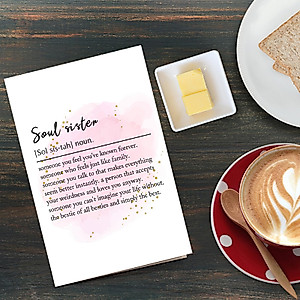 Soul sister
[Sol sis-tah] noun.
someone you feel you've known forever.
someone who feels just like family.
someone you talk to that makes everything
seem better instantly, a person that accepts
your weirdness and loves you anyway.
someone you can't imagine your life without.
the bestie of all besties and simply the best.